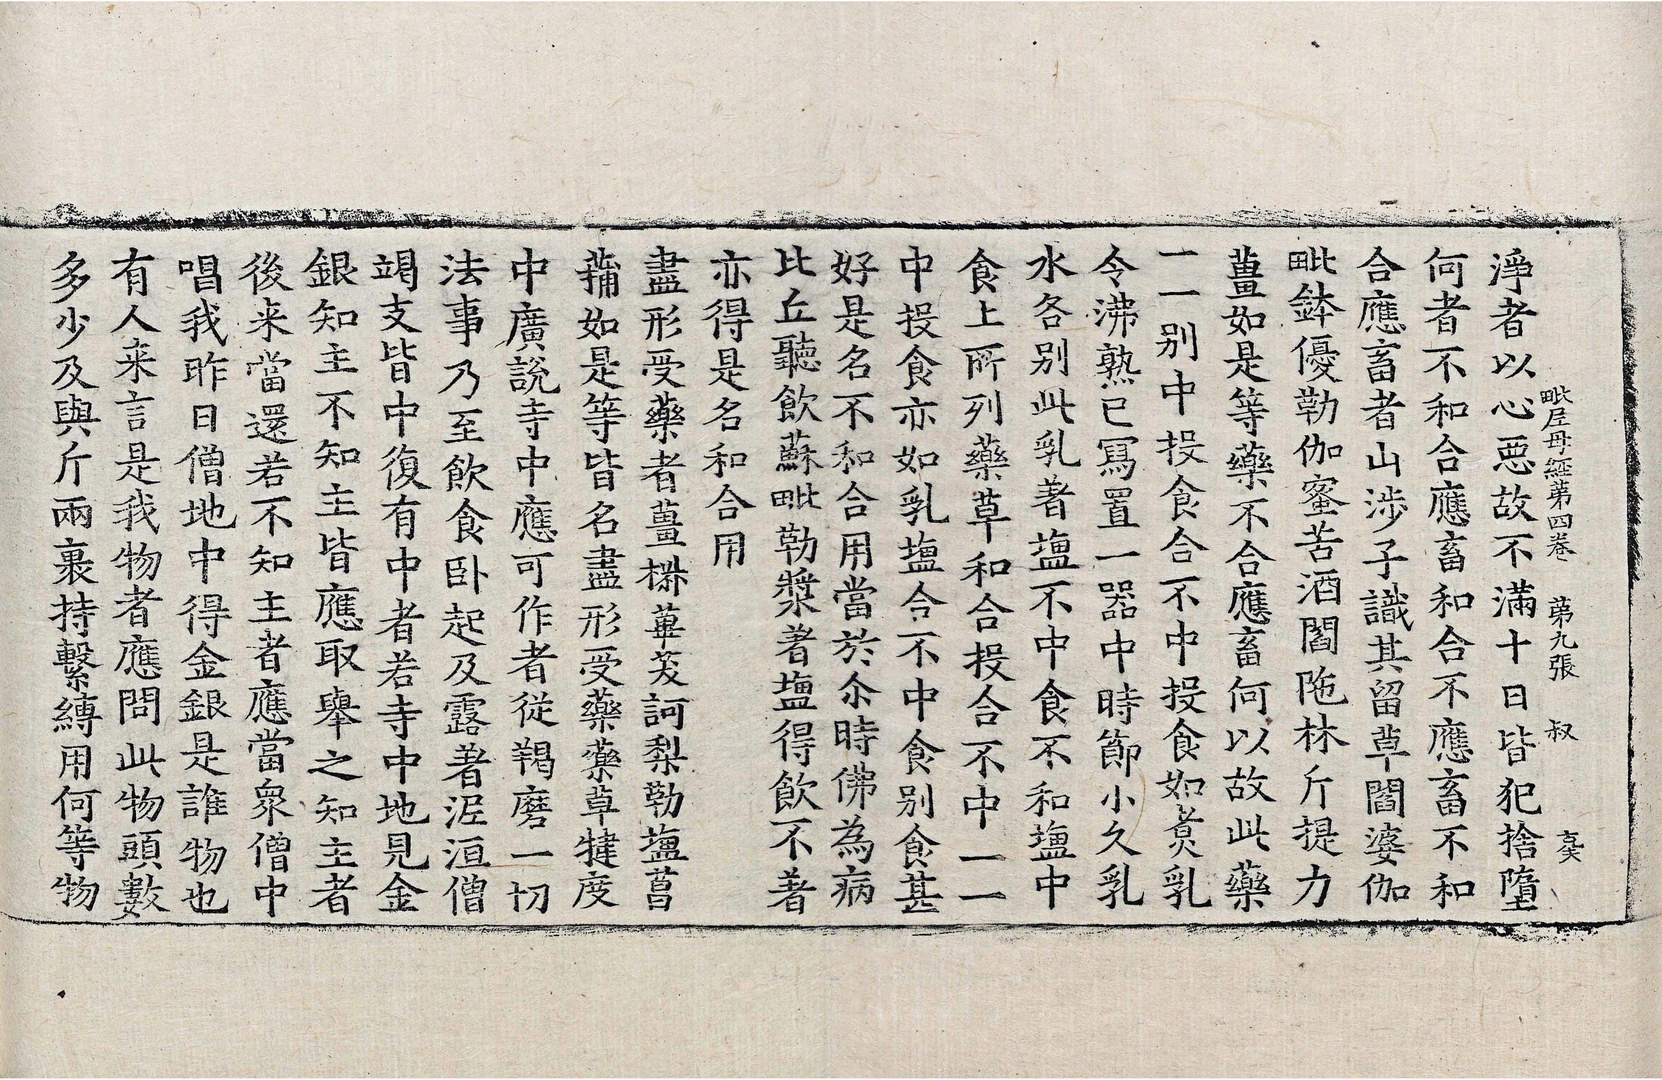 毗尼母經第四卷 第九張 叔
淨者以心惡故不滿十日皆犯捨墮
何者不和合應畜和合不應畜不和
合應畜者山涉子識其留草閻婆伽
毗鉢優勒伽蜜苦酒閻陁林斤提力
薑如是等藥不合應畜何以故此藥
一一别中投食合不中投食如煮乳
令沸熟已寫置一器中時節小久乳
水各别此乳著塩不中食不和塩中
食上所列藥草和合投合不中一一
中投食亦如乳塩合不中食别食甚
好是名不和合用當於尒時佛為病
比丘聽飲蘇毗勒漿著塩得飲不著
亦得是名和合用
盡形受藥者薑椒蓽茇訶梨勒塩菖
蒱如是等皆名盡形受藥藥草犍度
中廣說寺中應可作者從羯磨一切
法事乃至飲食卧起及露著泥洹僧
竭支皆中復有中者若寺中地見金
銀知主不知主皆應取舉之知主者
後来當還若不知主者應當衆僧中
唱我昨日僧地中得金銀是誰物也
有人来言是我物者應問此物頭數
多少及與斤兩裹持繫縛用何等物